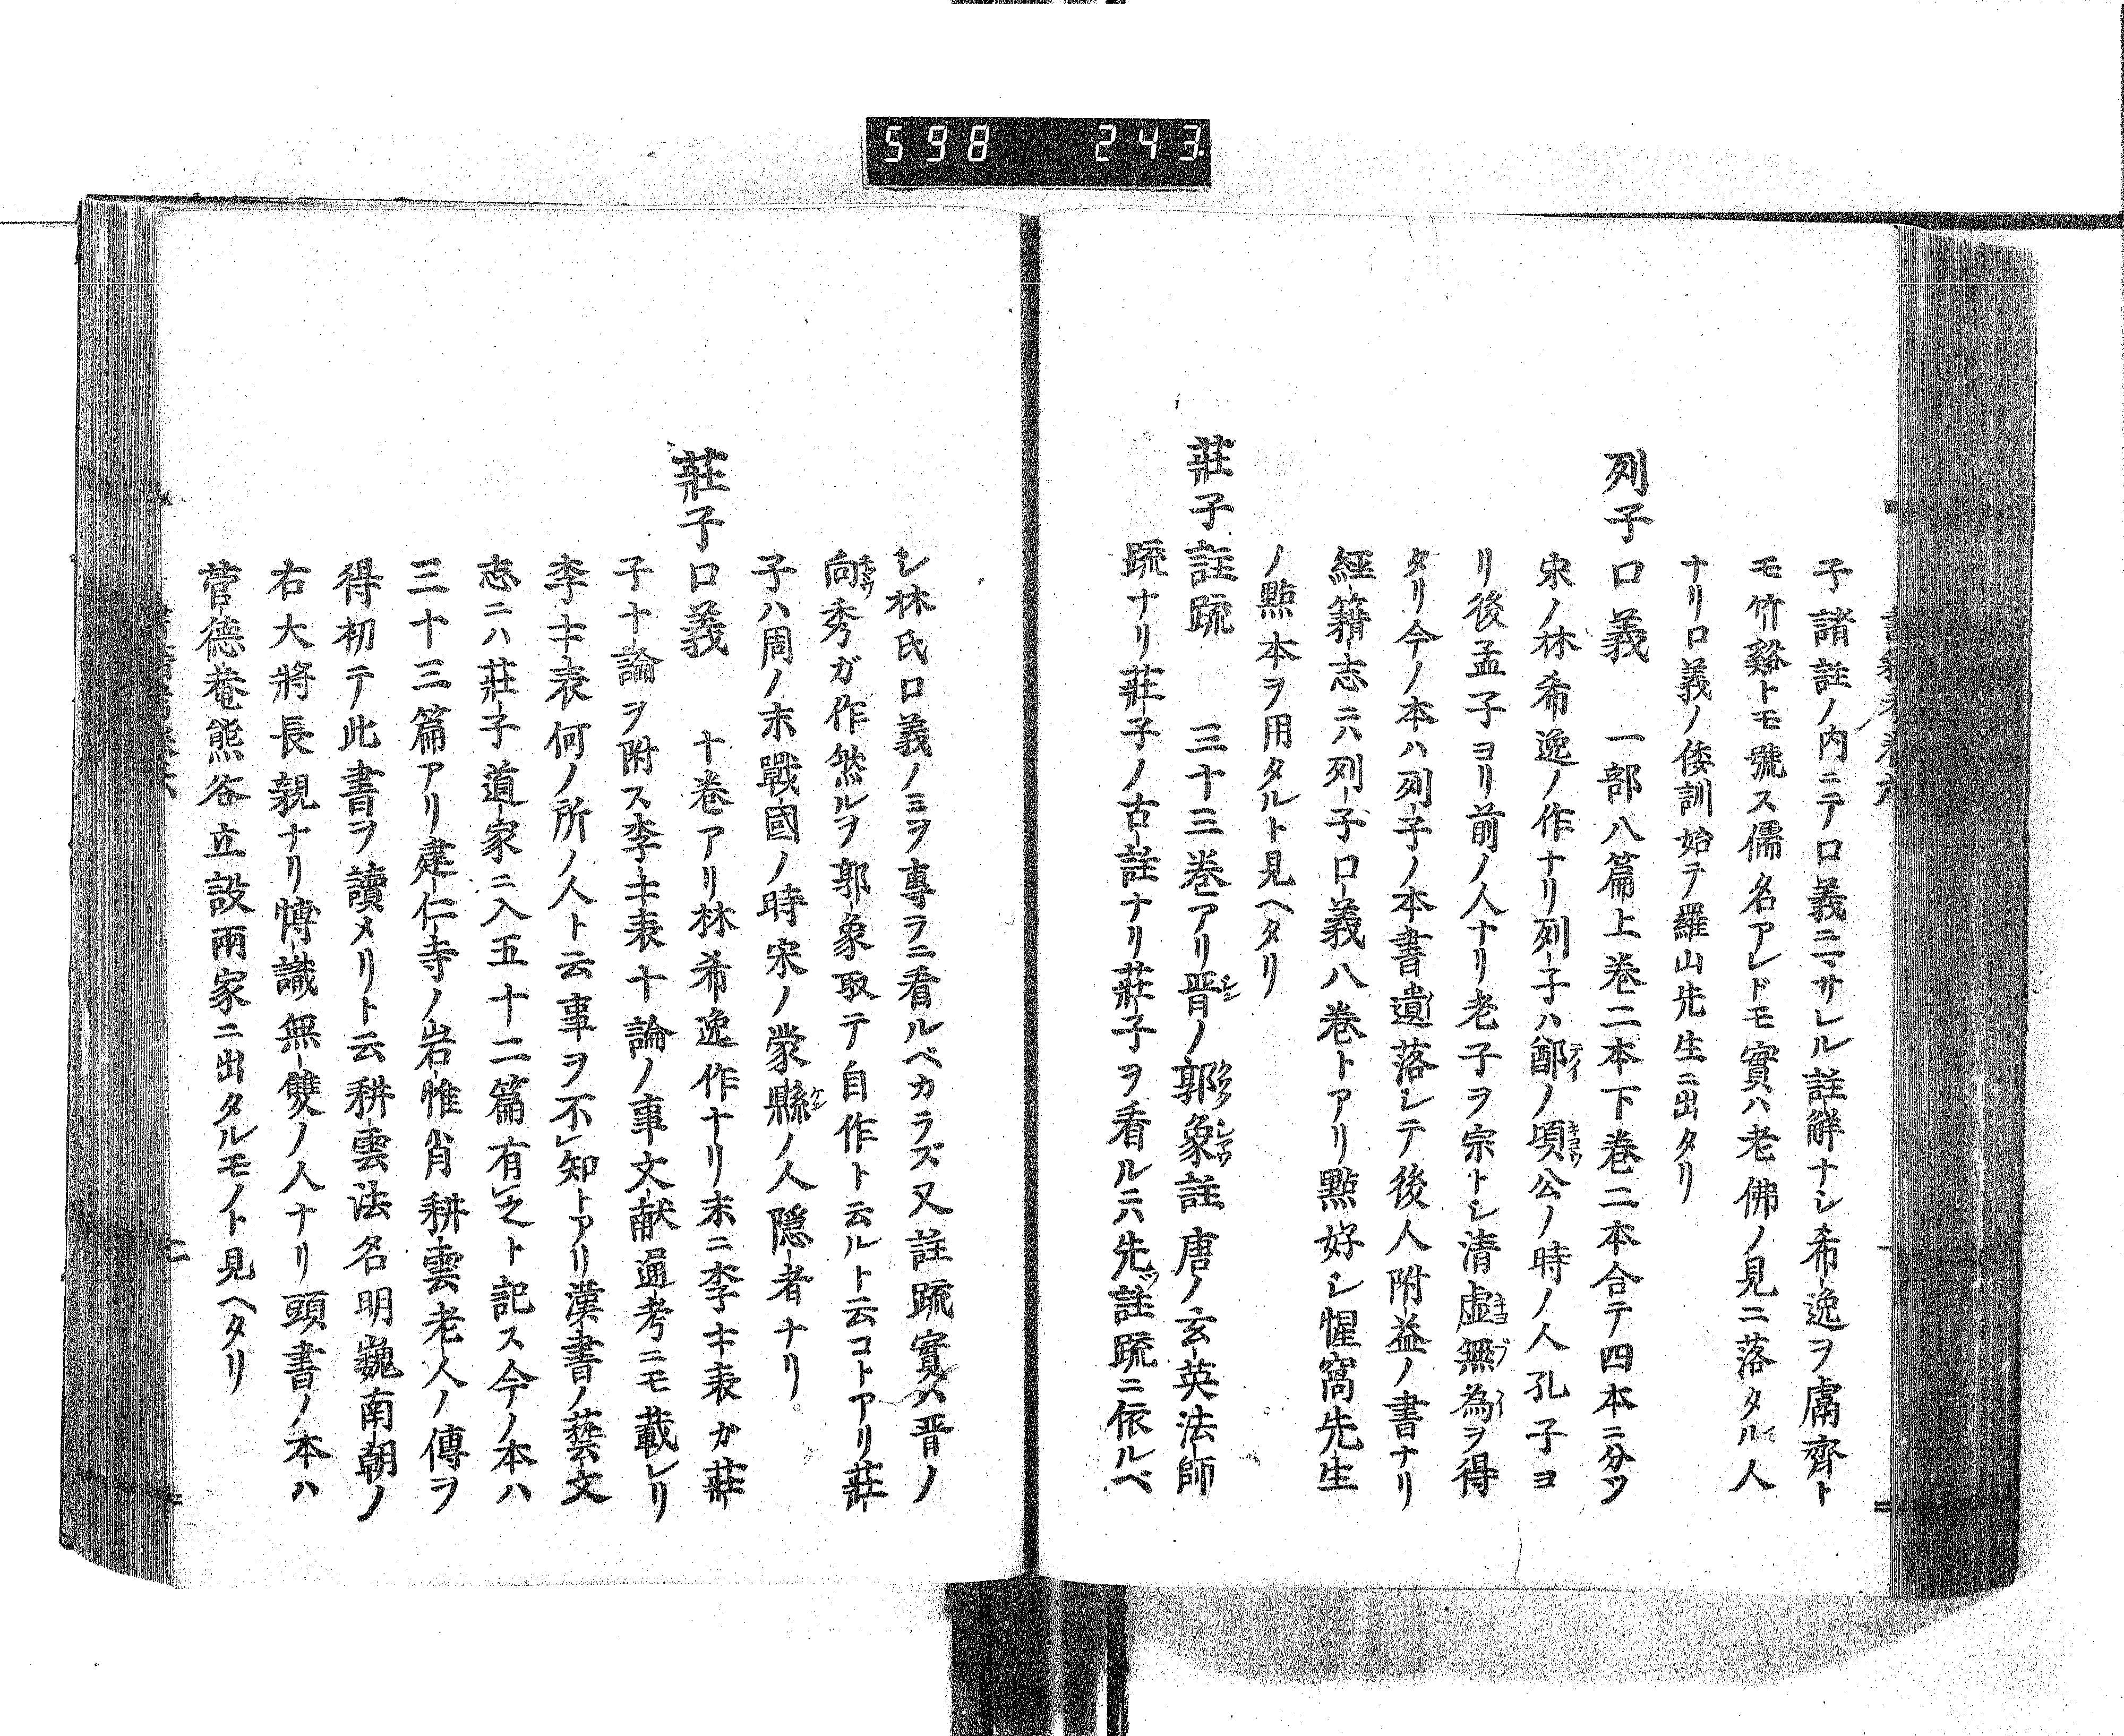 598 243
子諸註ノ内ニテ口義ニマサレル註解ナシ希逸ヲ鬳齊ト
モ竹谿トモ號ス儒名アレドモ實ハ老佛ノ見ニ落タル人
ナリ口義ノ倭訓始テ羅山先生ニ出タリ
列子口義 一部八篇上巻二本下巻二本合テ四本ニ分ツ
宋ノ林希逸ノ作ナリ列子ハ鄭ノ頃公ノ時ノ人孔子ヨ
リ後孟子ヨリ前ノ人ナリ老子ヲ宗トシ清虚無為ヲ得
タリ今ノ本ハ列子ノ本書遺落シテ後人附益ノ書ナリ
經籍志ニハ列子口義八巻トアリ點好シ惺窩先生
ノ點本ヲ用タルト見ヘタリ
莊子註疏 三十三巻アリ晋ノ郭象註唐ノ玄英法師
疏ナリ莊子ノ古註ナリ莊子ヲ看ルニハ先ヅ註疏ニ依ルベ
シ林氏口義ノミヲ專ラニ看ルベカラズ又註疏實ハ晋ノ
向秀ガ作然ルヲ郭象取テ自作ト云ルト云コトアリ莊
子ハ周ノ末戰國ノ時宋ノ蒙縣ノ人隠者ナリ
莊子口義 十巻アリ林希逸作ナリ末ニ李士表ガ莊
子十論ヲ附ス李士表十論ノ事文献通考ニモ載レリ
李士表何ノ所ノ人ト云事ヲ不知トアリ漢書ノ藝文
志ニハ莊子道家ニ入五十二篇有之ト記ス今ノ本ハ
三十三篇アリ建仁寺ノ岩惟肖耕雲老人ノ傳ヲ
得初テ此書ヲ讀メリト云耕雲法名明巍南朝ノ
右大將長親ナリ博識無雙ノ人ナリ頭書ノ本ハ
菅德菴熊谷立設兩家ニ出タルモノト見ヘタリ